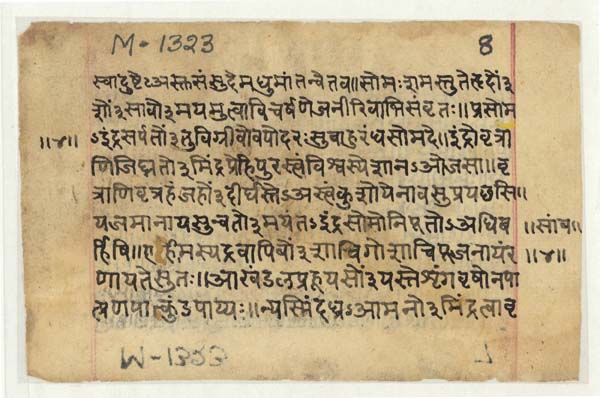 M-1323 8
स्वादुष्टेऽअस्तु संसुदे मधुमांतन्वे तव॥सोमः शमस्तु ते हृदों३
शों३सावो३मयमुत्वा विचर्षणे जनीरिवाभि संवृतः॥प्रसोम
॥४॥ ऽइंद्रसर्पतों३तुविग्रीवो वपोदरः सुबाहुरंधसो मदे॥इंद्रो वृत्रा
णि जिघ्नतों३मिंद्र प्रेहि पुरस्त्वं विश्वस्येशानऽओजसा॥वृ
त्राणि वृत्रहं जहों३दीर्घस्तेऽअस्त्वंकुशो येनावसु प्रयछसि॥
यजमानाय सुन्वतों३मयं तऽइंद्र सोमो निपूतोऽअधि ब ॥सांब॥
र्हिषि॥एहीमस्य द्रवा पिबों३शाचिगो शाचिपूजनायं र ॥४॥
णाय ते सुतः॥आखंडल प्रहूयसों३यस्ते शृंगवृषो नपा
त्प्रणपात्कुंडपाय्यः॥न्यस्मिंदध्रऽआमनों३मिंद्र त्वा वृ